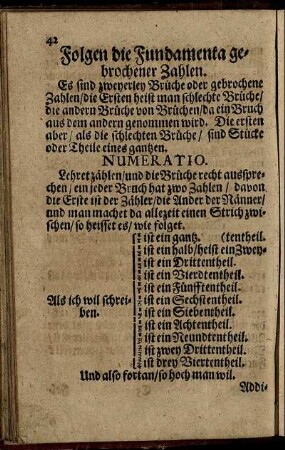 42
Folgen die Fundamenta ge-
brochener Zahlen.
Es sind zweyerley Brüche oder gebrochene
Zahlen/die Ersten heist man schlechte Brüche/
die andern Brüche von Brüchen/da ein Bruch
aus dem andern genommen wird. Die ersten
aber/als die schlechten Brüche/ sind Stücke
oder Theile eines gantzen.
NUMERATIO.
Lehret zählen/und die Brüche recht ausspre-
chen/ein jeder Bruch hat zwo Zahlen / davon
die Erste ist der Zähler/die Ander der Nänner/
und man machet da allezeit einen Strich zwi-
schen/so heisset es/wie folget.
ist ein gantz. (tentheil.
ist ein halb/heist ein Zwey-
ist ein Drittentheil.
ist ein Vierdtentheil.
ist ein Fünfftentheil.
Als ich wil schrei- ist ein Sechstentheil.
ben. ist ein Siebentheil.
ist ein Achtentheil.
ist ein Neundtentheil.
ist zwey Drittentheil.
ist drey Viertentheil.
Und also fortan/so hoch man wil.
Addi-